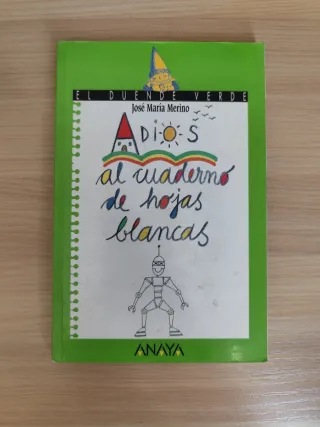 EL DUENDE VERDE
José María Merino
ADIOS
al cuaderno
de hojas
blancas
ANAYA